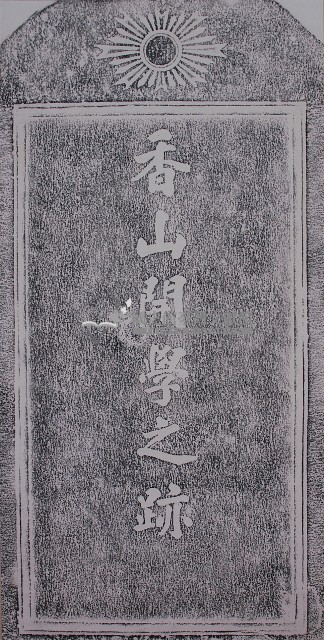 香山開學之跡